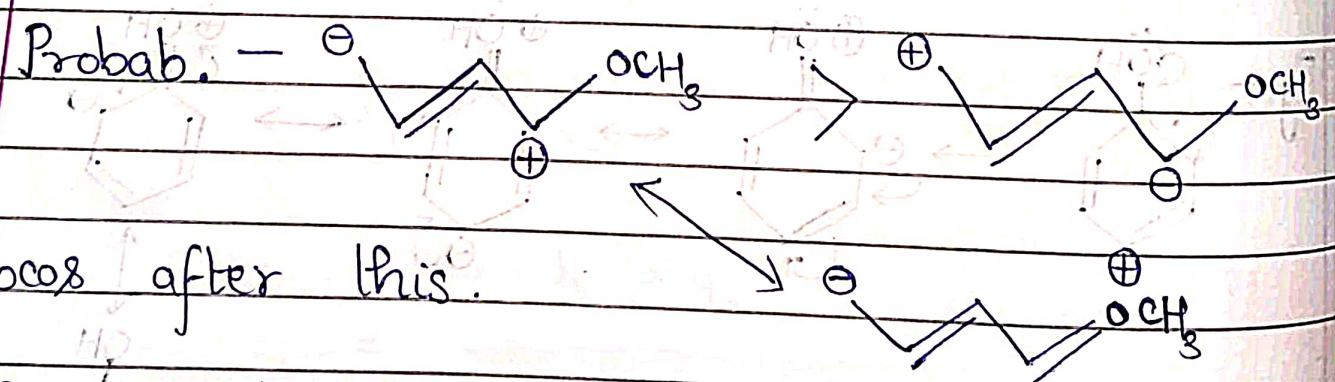 Probab. — ⊖ OCH₃ > ⊕ OCH₃
⊕ ⊖
after this. ⊖ ⊕
OCH₃